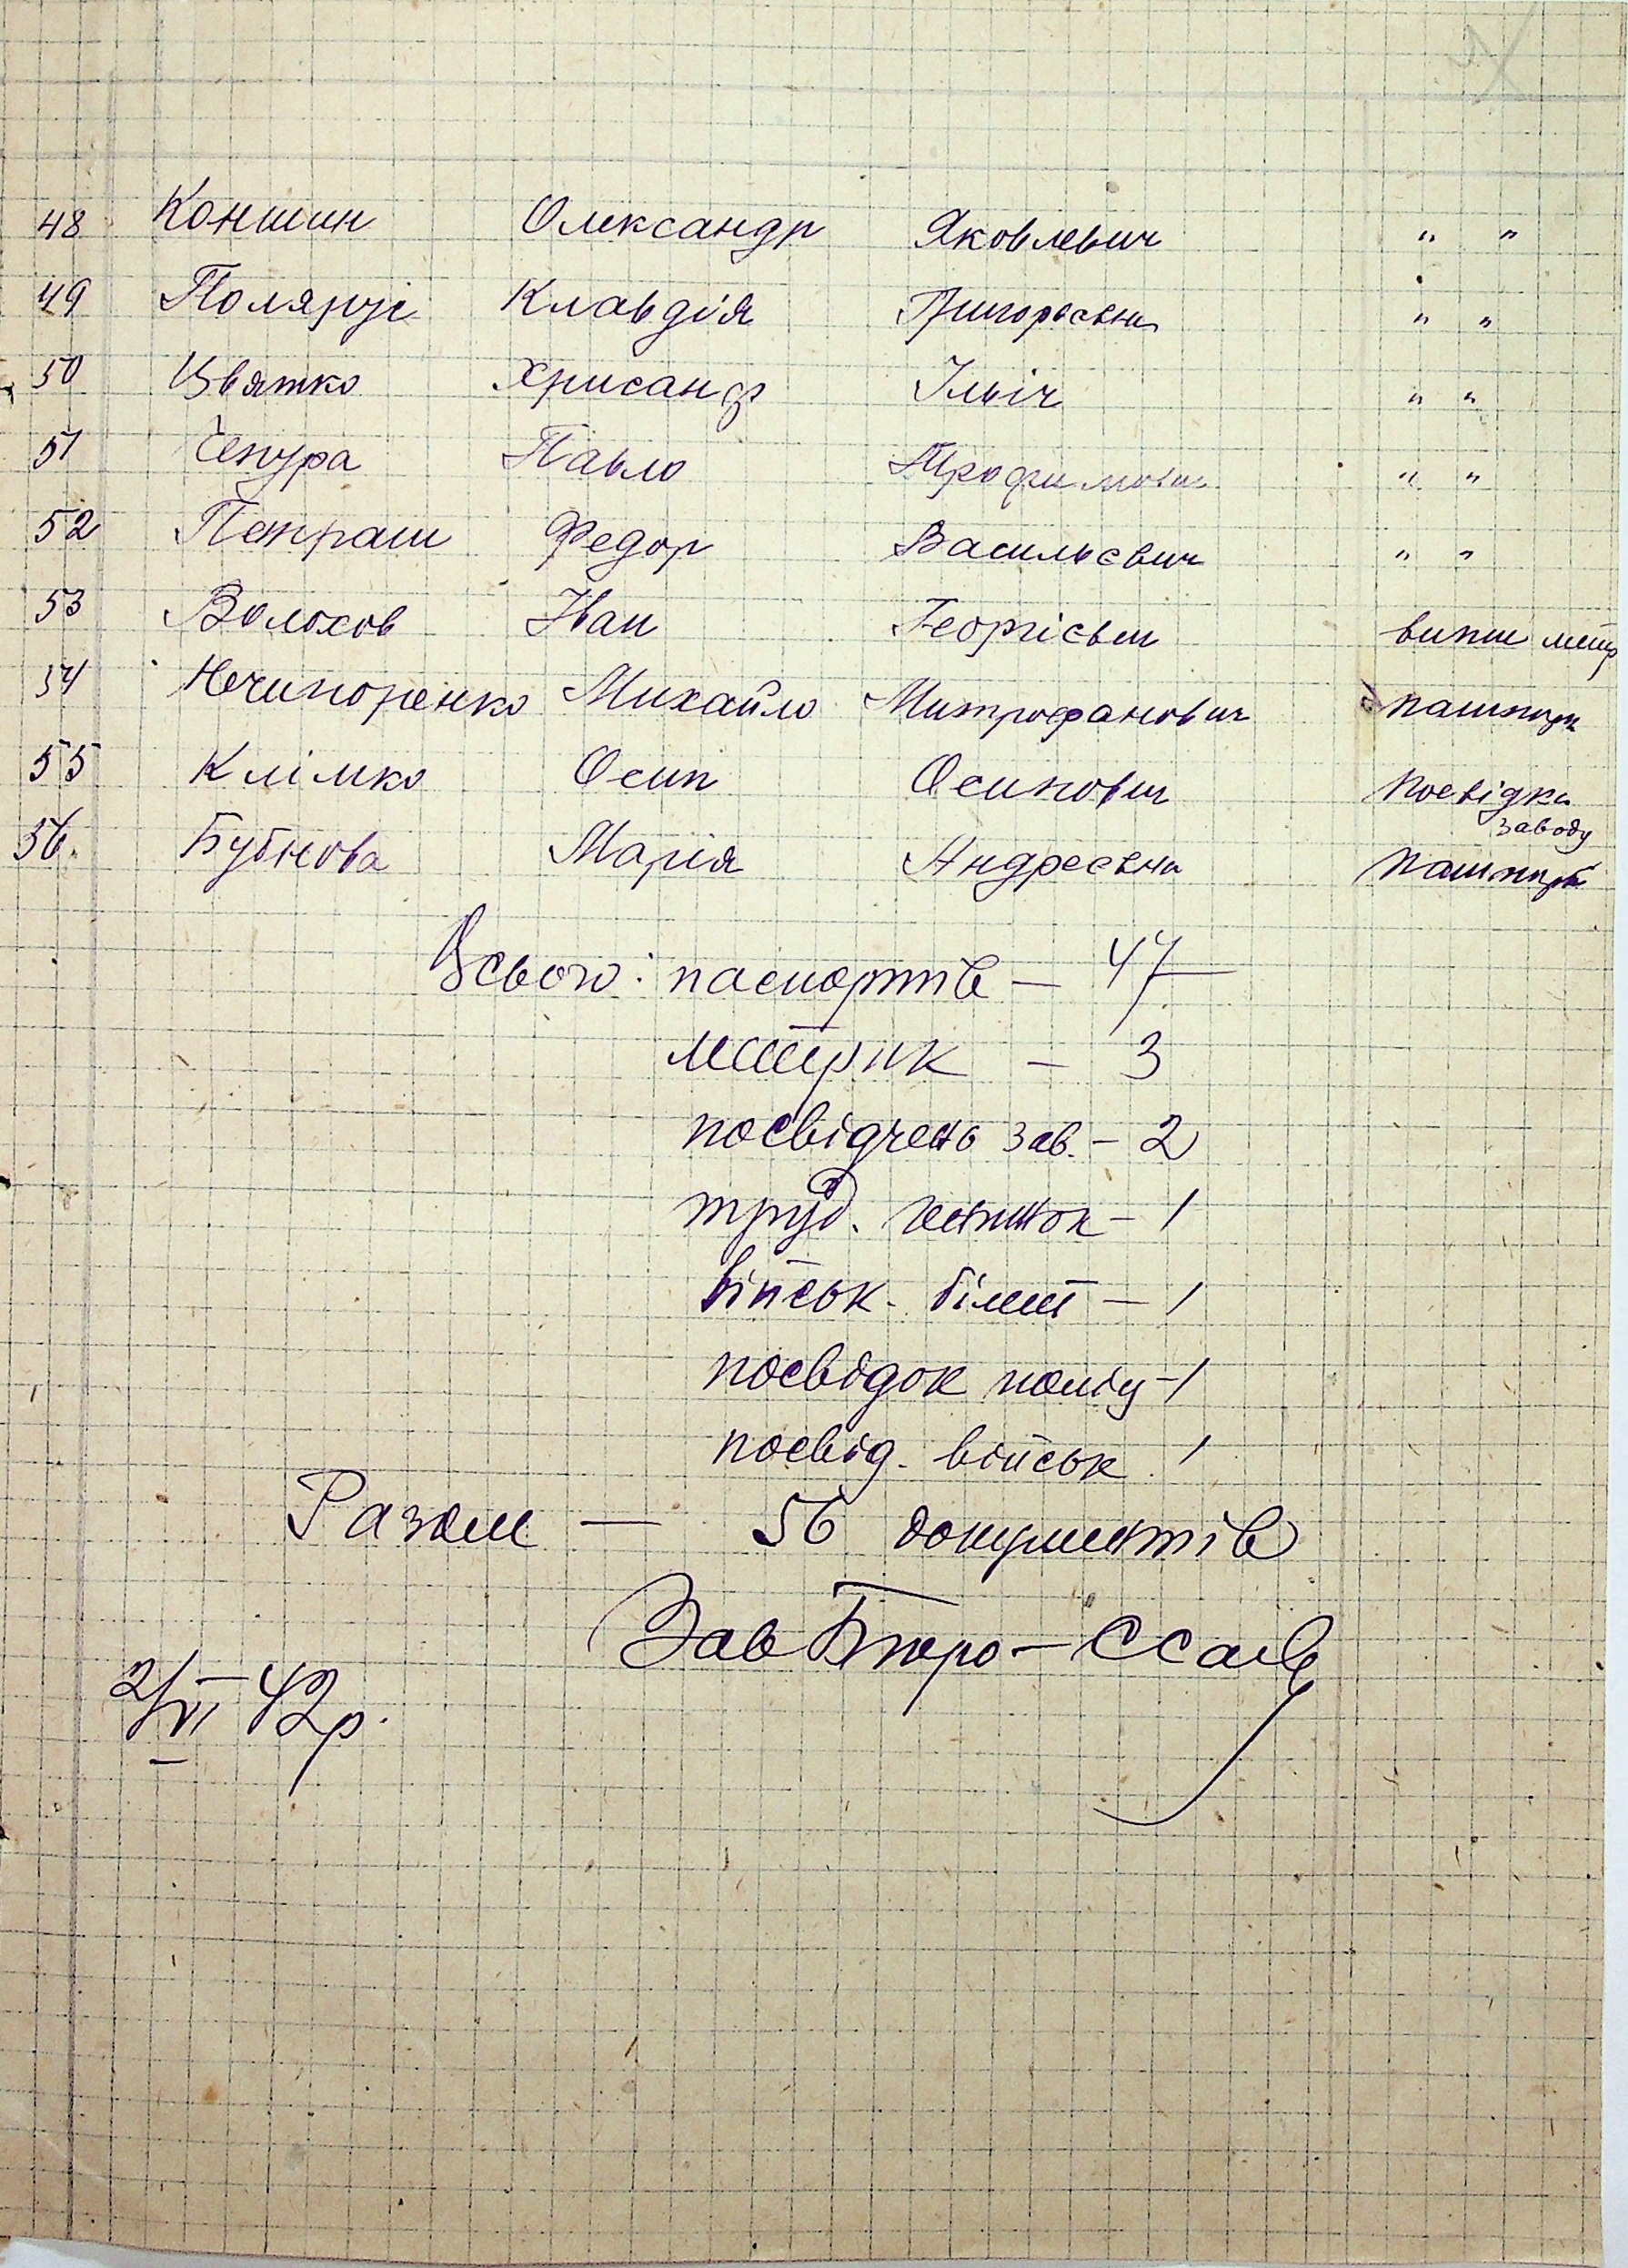 48 Коншин Олександр Яковлевич " "
49 Клавдія Григорьєвна " "
50 Цвятко Хрисанф Ільіч " "
51 Чепура Павло Трофимович " "
52 Петраш Федор Васильєвич " "
53 Волохов Іван Георгієвич випис метр
54 Нечипоренко Михайло Митрофанович пашпорт
55 Клімко Осип Осипович Посвідка
заводу
56. Бубнова Марія Андреєвна пашпорт
Всього: паспортів — 47
метрик — 3
посвідчень зав. — 2
труд. книжок — 1
військ. білет — 1
посвідок поліц — 1
посвід. військ. 1
Разом — 56 документів
Зав Бюро —
2/VI 42р.